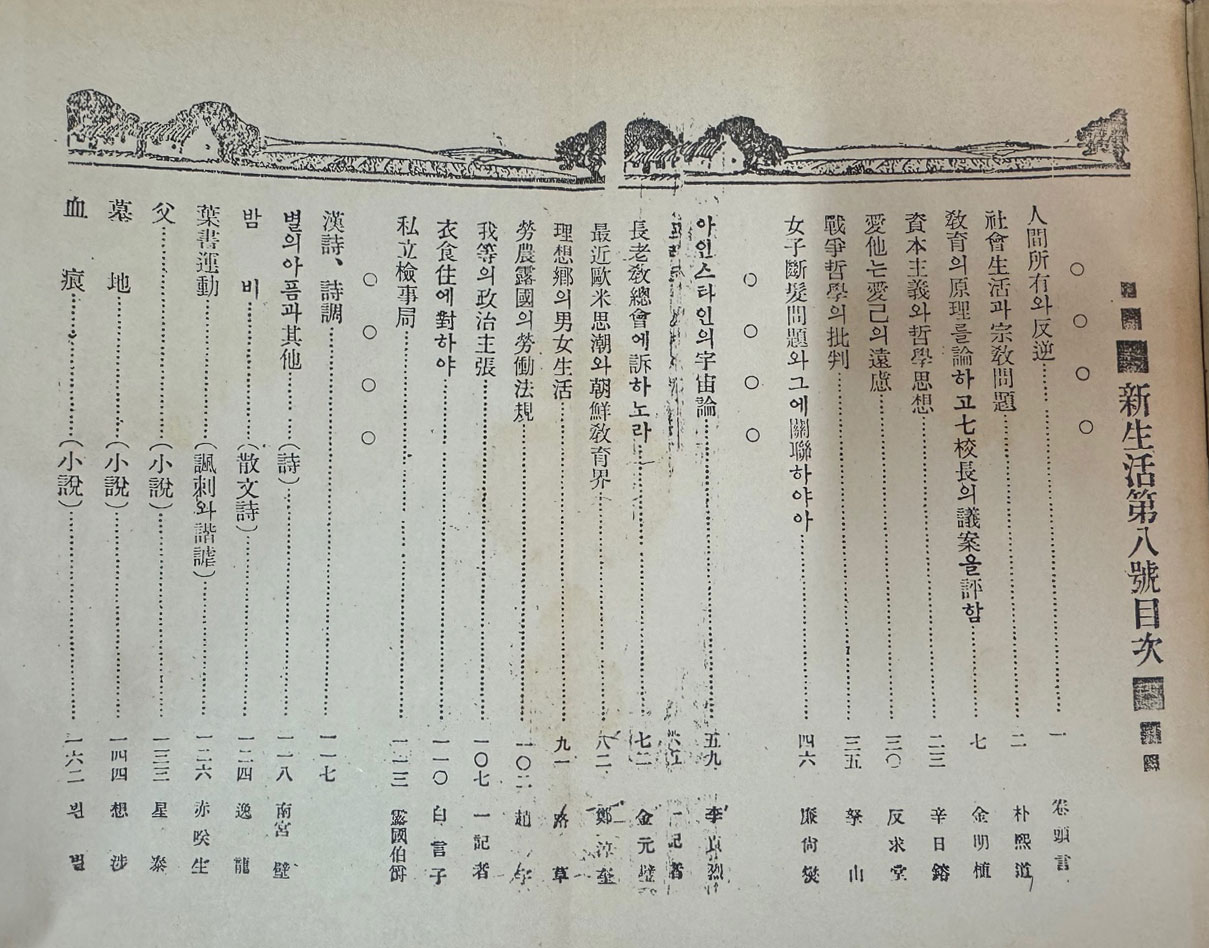 新生活第八號目次
○ ○ ○ ○
人間所有와反逆 一 卷頭言
社會生活과宗敎問題 二 朴熙道
敎育의原理를論하고七校長의議案을評함 七 金明植
資本主義와哲學思想 二三 辛日鎔
愛他는愛己의遠慮 三〇 反求堂
戰爭哲學의批判 三五 拏山
女子斷髮問題와그에關聯하야아 四六 廉尙燮
○ ○ ○ ○
아인스타인의宇宙論 五九 李
一記者
長老敎總會에訴하노라 七二 金元璧
最近歐米思潮와朝鮮敎育界 八二 鄭
理想鄕의男女生活 九一 路草
勞農露國의勞働法規 一〇二 趙
我等의政治主張 一〇七 一記者
衣食住에對하야 一一〇 白言子
私立檢事局 一一三 露國伯爵
○ ○ ○ ○
漢詩、詩調 一一七
별의아픔과其他 (詩) 一一八 南宮璧
밤비 (散文詩) 一二四 逸龍
葉書運動 (諷刺와諧謔) 一二六 赤咲生
父 (小說) 一三三 星泰
墓地 (小說) 一四四 想涉
血痕 (小說) 一六二 별